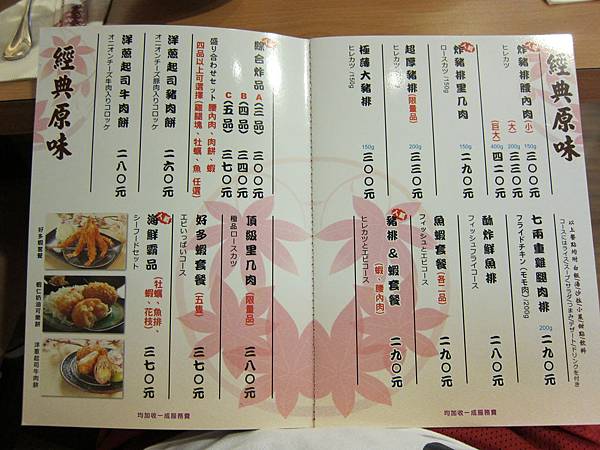 經典原味
炸豬排腰內肉(小) 150g 三〇〇元
(大) 200g 三三〇元
(巨大) 400g 四二〇元
ヒレカツ
炸豬排里肌肉 150g 二九〇元
ロースカツ 150g
超厚豬排(限量品) 200g 三三〇元
ヒレカツ
極薄大豬排 150g 三〇〇元
ヒレカツ 150g
以上餐點均附白飯/湯/沙拉/小菜/甜點/飲料
コースにはライス、スープ、サラダ、つまみ、デザート、ドリンクを付き
七兩重雞腿肉排 200g 二九〇元
フライドチキン(モモ肉)200g
酥炸鮮魚排 二八〇元
フィッシュフライコース
魚蝦套餐(各二品) 二九〇元
フィッシュとエビコース
豬排&蝦套餐(蝦、腰內肉) 二九〇元
ヒレカツとエビコース
均加收一成服務費
綜合炸品 A(三品) 三〇〇元
B(四品) 三四〇元
C(五品) 三七〇元
盛り合わせセット 腰內肉、肉餅、蝦
四品以上可選擇(雞腿塊、牡蠣、魚 任選)
洋蔥起司豬肉餅 二六〇元
オニオンチーズ豚肉入りコロッケ
洋蔥起司牛肉餅 二八〇元
オニオンチーズ牛肉入りコロッケ
經典原味
頂級里肌肉(限量品) 三八〇元
極品ロースカツ
好多蝦套餐(五隻) 三七〇元
エビいっぱいコース
海鮮霸品(牡蠣、魚排、蝦、花枝) 三七〇元
シーフードセット
好多蝦套餐
蝦仁奶油可樂餅
洋蔥起司牛肉餅
均加收一成服務費